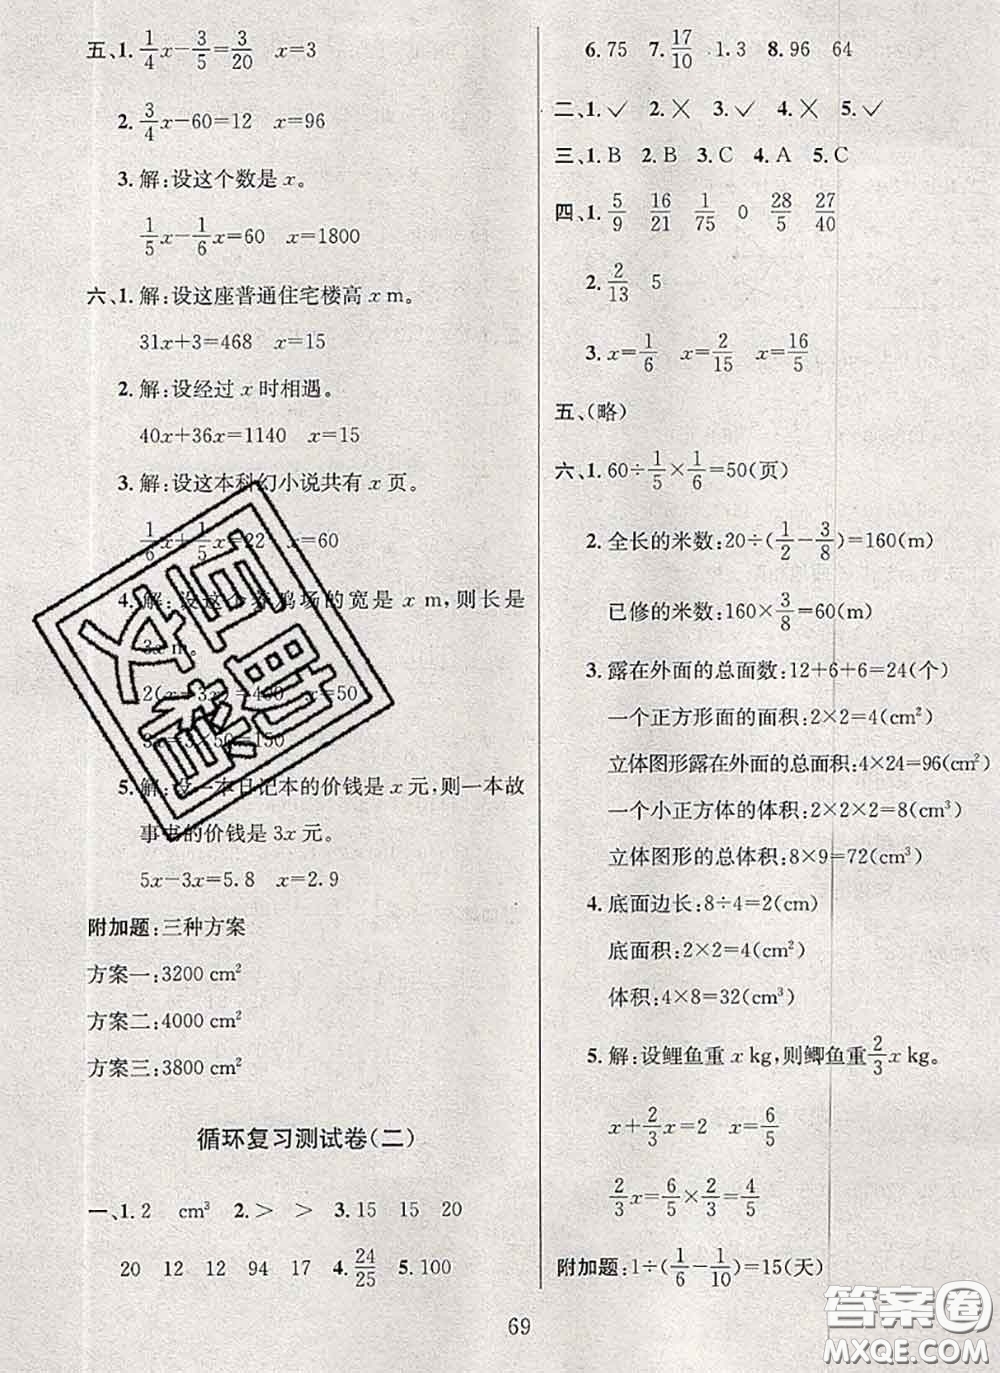 五、1. 1/4x-3/5=3/20 x=3
2. 3/4x-60=12 x=96
3. 解:设这个数是x。
1/5x-1/6x=60 x=1800
六、1. 解:设这座普通住宅楼高x m。
31x+3=468 x=15
2. 解:设经过x时相遇。
40x+36x=1140 x=15
3. 解:设这本科幻小说共有x页。
1/6x+1/5x=22 x=60
4. 解:设这个养鸡场的宽是x m,则长是
3x m。
2(x+3x)=400 x=50
3x=3×50=150
5. 解:设一本日记本的价钱是x元,则一本故
事书的价钱是3x元。
5x-3x=5.8 x=2.9
附加题:三种方案
方案一:3200 cm²
方案二:4000 cm²
方案三:3800 cm²
循环复习测试卷(二)
一、1. 2 cm³ 2. > > 3. 15 15 20
20 12 12 94 17 4. 24/25 5. 100
6. 75 7. 17/10 1.3 8. 96 64
二、1. ✓ 2. ✕ 3. ✓ 4. ✕ 5. ✓
三、1. B 2. B 3. C 4. A 5. C
四、1. 5/9 16/21 1/75 0 28/5 27/40
2. 2/13 5
3. x=1/6 x=2/15 x=16/5
五、(略)
六、1. 60÷1/5×1/6=50(页)
2. 全长的米数:20÷(1/2-3/8)=160(m)
已修的米数:160×3/8=60(m)
3. 露在外面的总面数:12+6+6=24(个)
一个正方形面的面积:2×2=4(cm²)
立体图形露在外面的总面积:4×24=96(cm²)
一个小正方体的体积:2×2×2=8(cm³)
立体图形的总体积:8×9=72(cm³)
4. 底面边长:8÷4=2(cm)
底面积:2×2=4(cm²)
体积:4×8=32(cm³)
5. 解:设鲤鱼重x kg,则鲫鱼重2/3x kg。
x+2/3x=2 x=6/5
2/3x=6/5×2/3=4/5
附加题:1÷(1/6-1/10)=15(天)
69
互助文档
答案圈
MXQE.COM